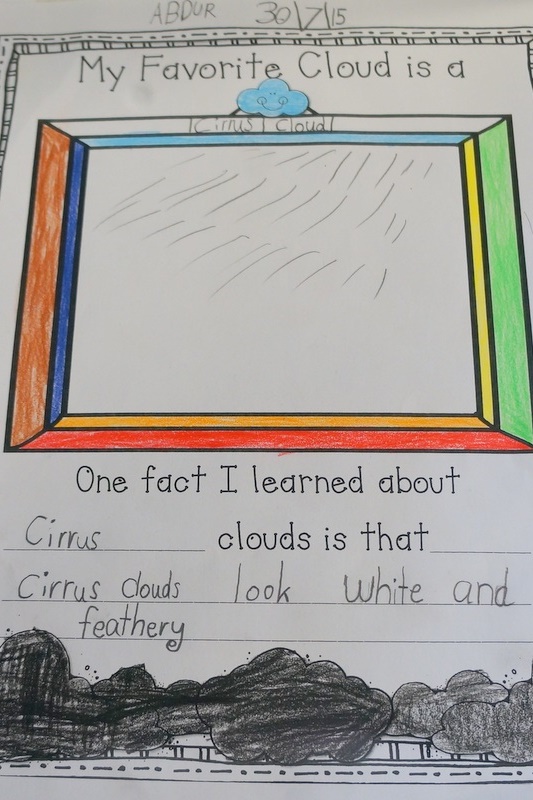 ABDUR 30\7\15
My Favorite Cloud is a
Cirrus Cloud
One fact I learned about
Cirrus clouds is that
Cirrus clouds look white and
feathery